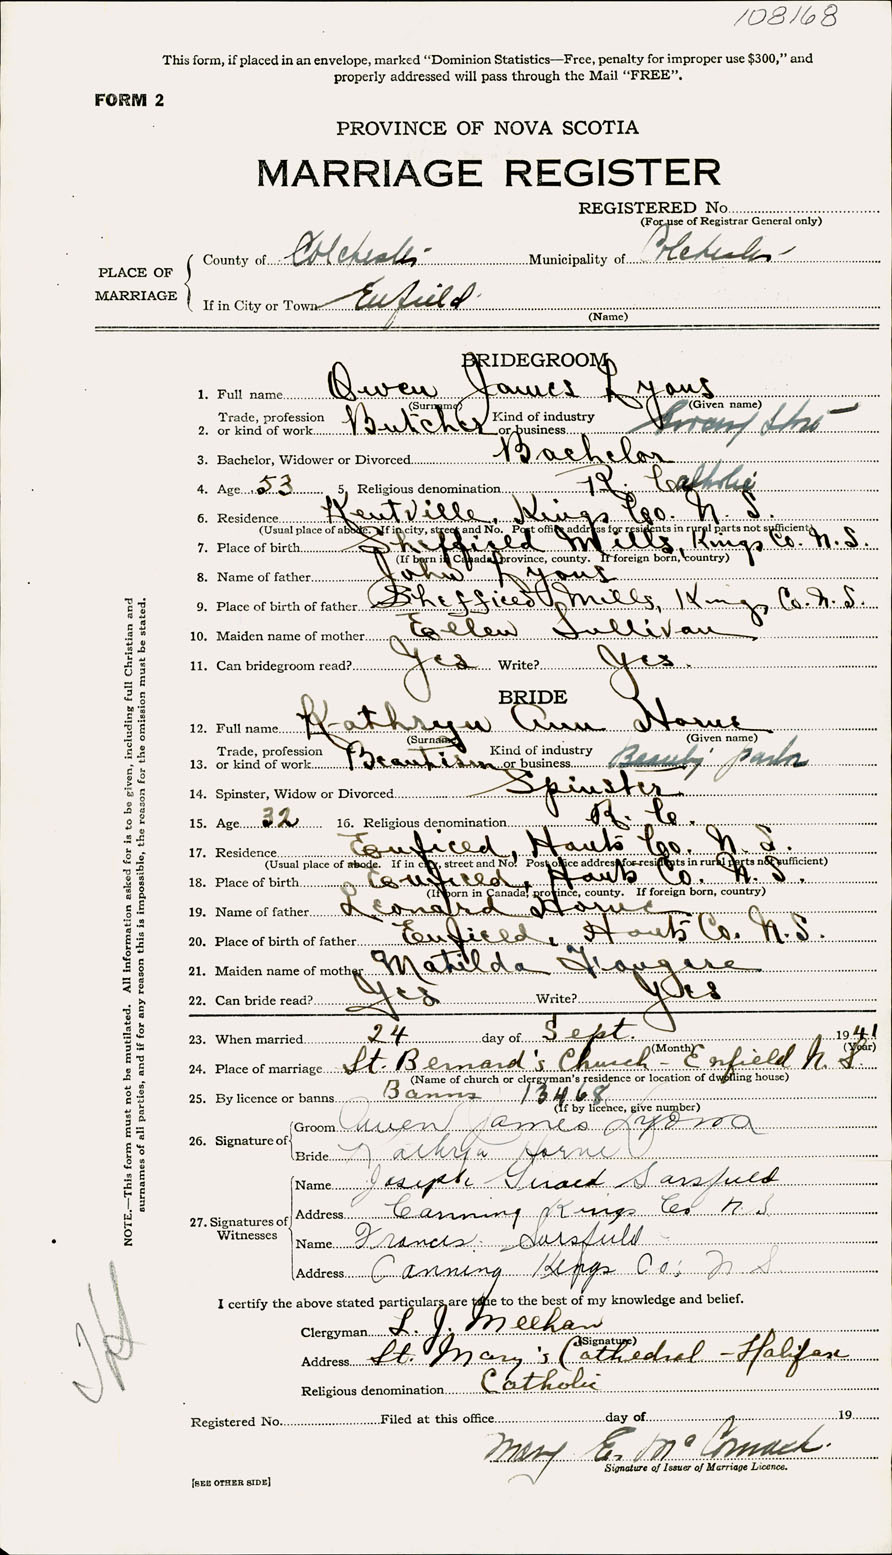 108168
This form, if placed in an envelope, marked “Dominion Statistics—Free, penalty for improper use $300,” and
properly addressed will pass through the Mail “FREE”.
FORM 2
PROVINCE OF NOVA SCOTIA
MARRIAGE REGISTER
REGISTERED No.
(For use of Registrar General only)
PLACE OF MARRIAGE
County of Colchester Municipality of Colchester
If in City or Town Enfield
(Name)
BRIDEGROOM
1. Full name Owen James Lyons
(Surname) (Given name)
2. Trade, profession or kind of work Butcher Kind of industry or business
3. Bachelor, Widower or Divorced Bachelor
4. Age 53 5. Religious denomination R. Catholic
6. Residence Kentville, Kings Co. N. S.
(Usual place of abode. If in city, street and No. Post office address for residents in rural parts not sufficient)
7. Place of birth Sheffield Mills, Kings Co. N.S.
(If born in Canada, province, county. If foreign born, country)
8. Name of father John Lyons
9. Place of birth of father Sheffield Mills, Kings Co. N.S.
10. Maiden name of mother Ellen Sullivan
11. Can bridegroom read? Yes Write? Yes.
BRIDE
12. Full name Kathryn Ann Horne
(Surname) (Given name)
13. Trade, profession or kind of work Beautism Kind of industry or business Beauty parlor
14. Spinster, Widow or Divorced Spinster
15. Age 32 16. Religious denomination R. C.
17. Residence Enfield, Hants Co. N. S.
(Usual place of abode. If in city, street and No. Post office address for residents in rural parts not sufficient)
18. Place of birth Enfield, Hants Co. N. S.
(If born in Canada, province, county. If foreign born, country)
19. Name of father Leonard Horne
20. Place of birth of father Enfield, Hants Co. N.S.
21. Maiden name of mother Matilda Fougere
22. Can bride read? Yes Write? Yes
23. When married 24 day of Sept. 1941
(Month) (Year)
24. Place of marriage St. Bernard's Church - Enfield N. S.
(Name of church or clergyman's residence or location of dwelling house)
25. By licence or banns Banns 13468
(If by licence, give number)
26. Signature of
Groom Owen James Lyons
Bride Kathryn Horne
27. Signatures of Witnesses
Name Joseph Sarsfield
Address Canning Kings Co N S
Name Francis Sarsfield
Address Canning Kings Co; N S.
I certify the above stated particulars are true to the best of my knowledge and belief.
Clergyman L. J. Meehan
(Signature)
Address St. Mary's Cathedral - Halifax
Religious denomination Catholic
Registered No. Filed at this office day of 19
Mary E. McCormack.
Signature of Issuer of Marriage Licence.
[SEE OTHER SIDE]
NOTE.—This form must not be mutilated. All Information asked for is to be given, including full Christian and
surnames of all parties, and if for any reason this is impossible, the reason for the omission must be stated.